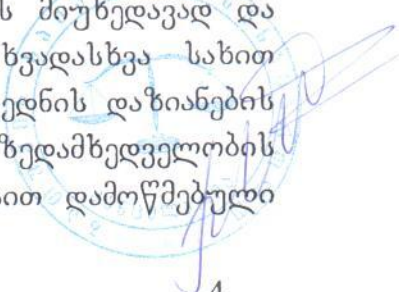 მიუხედავად და
სხვადასხვა სახით
დაზიანების
ზედამხედველობის
დამოწმებული
4